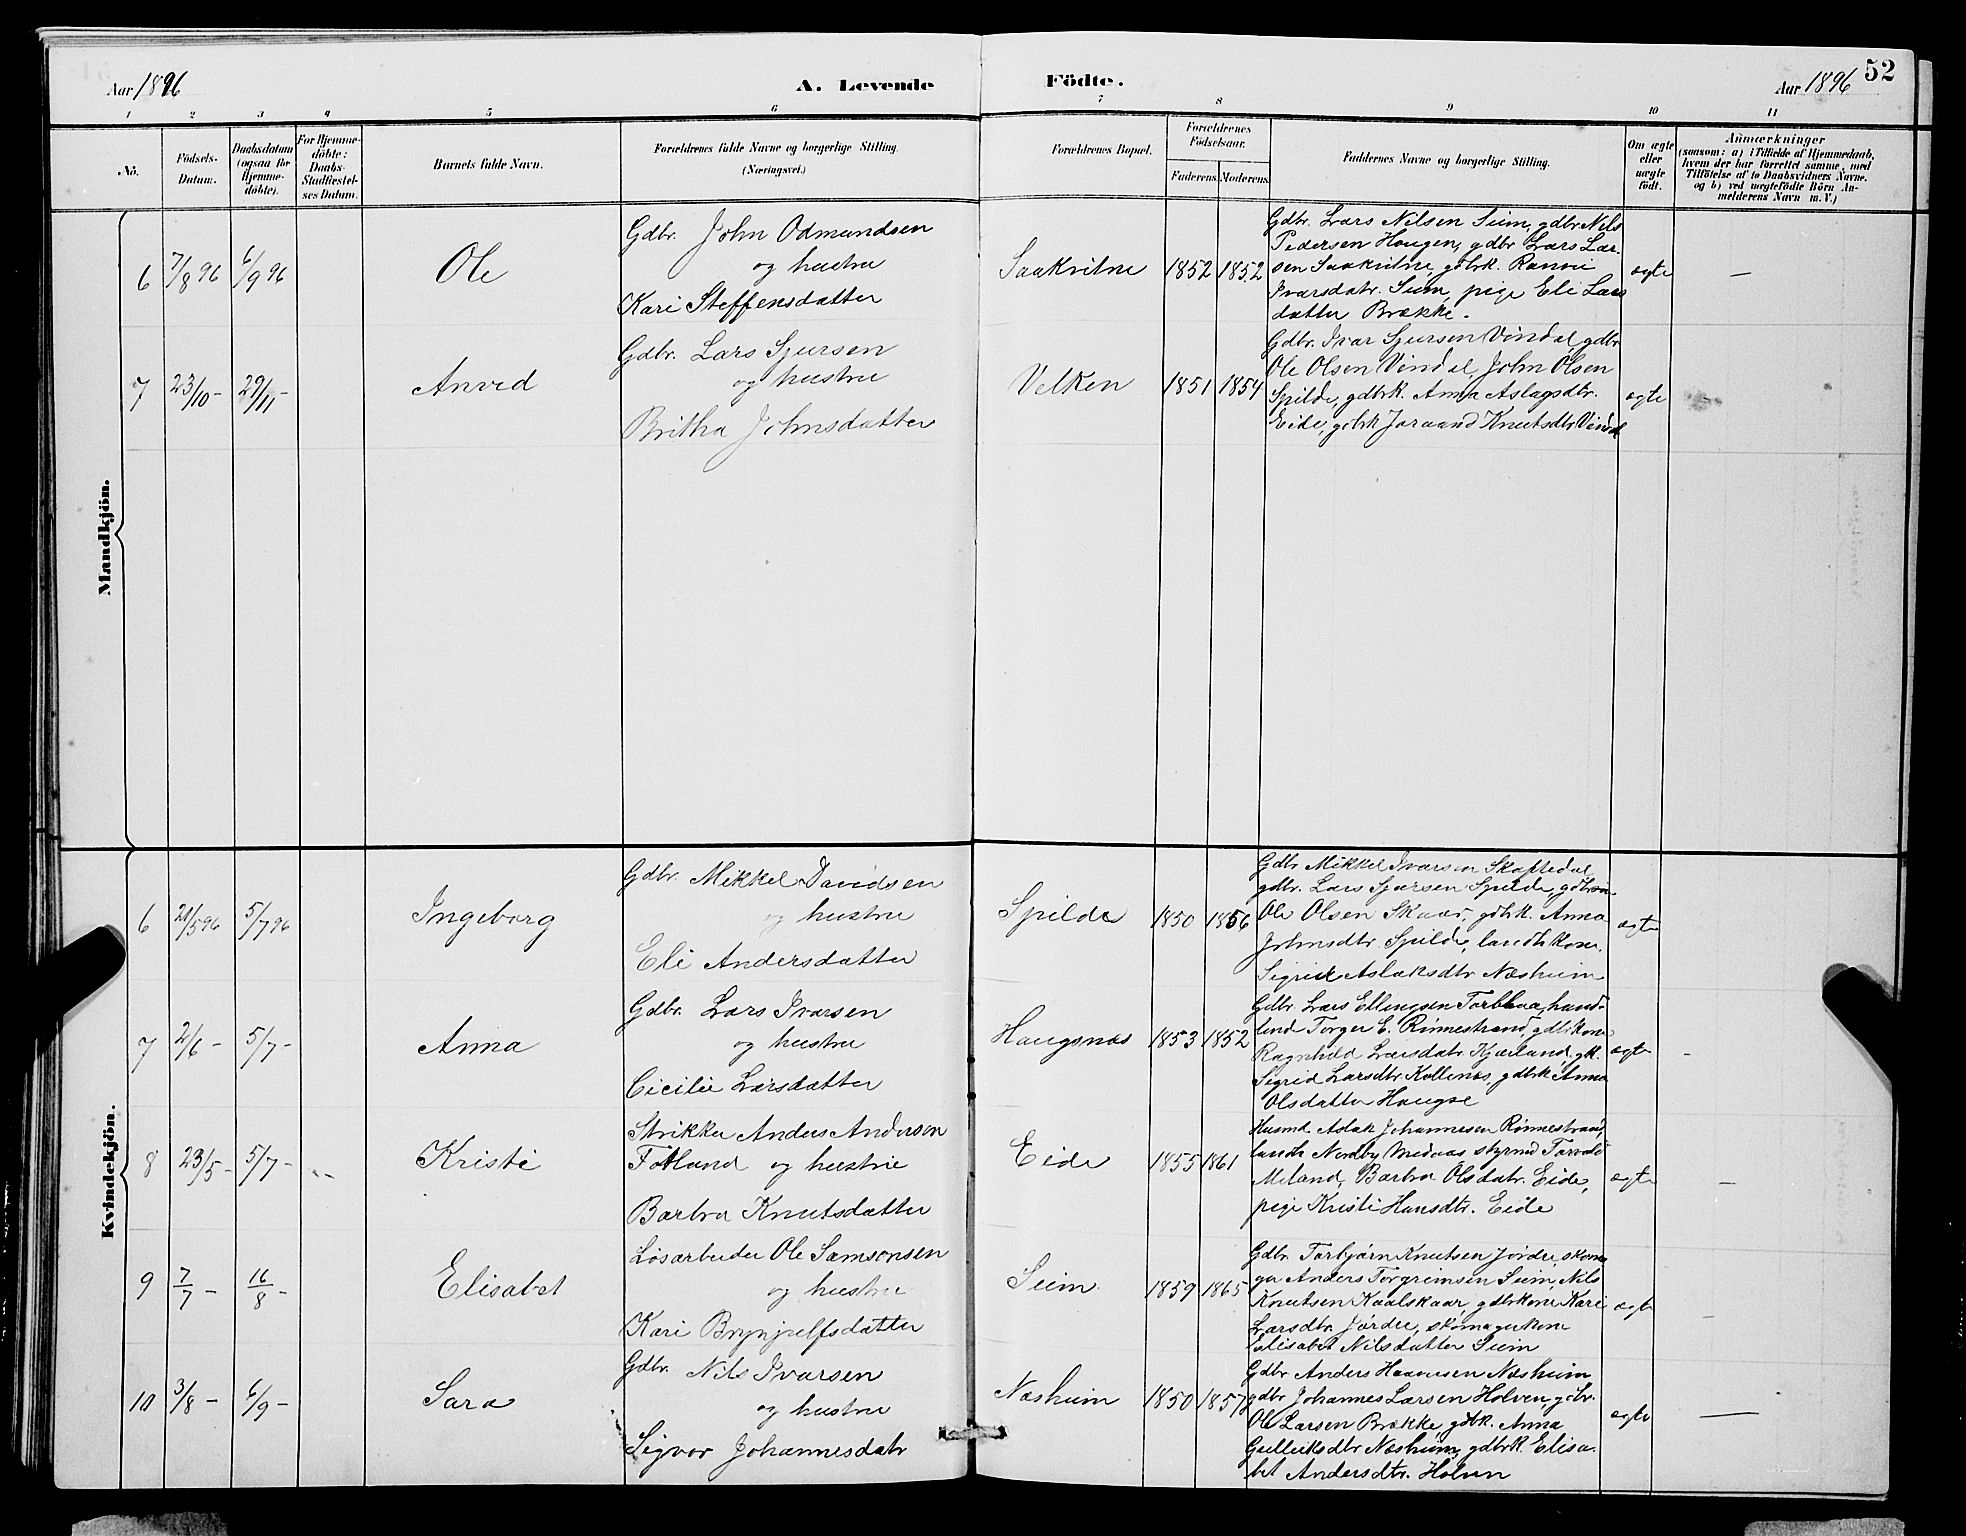 Aar 1896
A. Levende
Födte.
Aar 1896
52
1 2 3 4 5 6 7 8 9 10 11
No.
Födsels-
Datum.
Daabsdatum
(ogsaa for
Hjemme-
döbte).
For Hjemme-
döbte:
Daabs-
Stadfæstel-
ses Datum.
Barnets fulde Navn.
Forældrenes fulde Navne og borgerlige Stilling.
(Næringsvei.)
Forældrenes Bopæl.
Forældrenes
Födselsaar.
Faderens.
Moderens.
Faddernes Navne og borgerlige Stilling.
Om ægte
eller
uægte
født.
Anmærkninger
(saasom: a) i Tilfælde af Hjemmedaab,
hvem der har forrettet samme, med
Tilföielse af to Daabsvidners Navne,
og b) ved uægtefödte Börn An-
melderens Navn m. V.)
Mandkjön.
6 7/8 96 6/9 96
Ole
Gdbr. John Odmundsen
og hustru
Kari Steffensdatter
Saakvitne
1852 1852
Gdbr. Lars Nilsen Seim, gdbr Nils
Pedersen Haugen, gdbr Lars Lar-
sen Saakvitne, gdbrk. Ranvei
Ivarsdatr. Seim, pige Eli Lars
datter Brække.
ægte
—
7 23/10 - 29/11 -
Anved
Gdbr. Lars Sjursen
og hustru
Britha Johnsdatter
Velken
1851 1854
Gdbr. Ivar Sjursen Vindal, gdbr
Ole Olsen Vindal, John Olsen
Spilde, gdbrk. Anna Aslagsdtr.
Eide, gdbrk Joraand Knutsdtr Vindal
ægte
Kvindekjön.
6 5/7 96
Ingeborg
Gdbr. Mikkel Davidsen
og hustru
Eli Andersdatter
Spilde
1850 1856
Gdbr Mikkel Ivarsen Skaftedal
gdbr. Lars Sjursen Spilde, gdbr
Ole Olsen Skaar, gdbrk. Anna
Johnsdtr Spilde, landh. kone
Sigrid Aslaksdtr Næsheim
ægte
7 2/6 - 5/7 -
Anna
Gdbr. Lars Ivarsen
og hustru
Cicilie Larsdatter
Haugsnæs
1853 1852
Gdbr Lars Ellingsen Torblaa, hand-
lend Torger E. Rønnestrand, gdbrkone
Ragnhild Larsdatr Kjærland, gk.
Sigrid Larsdtr Kollenæs, gdbrk Anna
Olsdatter Haugse
ægte
-
8 23/5 - 5/7 -
Kristi
Strikker Anders Andersen
Fotland og hustru
Barbra Knutsdatter
Eide
1855 1861
Husmd Aslak Johannesen Rønnestrand,
landh Nordby
Meland, Barbra Olsdatr. Eide,
pige Kristi Hansdtr. Eide
ægte
—
9 7/7 - 16/8 -
Elisabet
Løsarbeider Ole Samsonsen
og hustru
Kari Brynjulfsdatter
Seim
1859 1865
Gdbr. Torbjørn Knutsen Jørdre, skoma
ger Anders Torgrimsen Seim, Nils
Knutsen Kaalskaar, gdbrkone Kari
Larsdtr. Jørdre, skomagerkone
Elisabet Nilsdatter Seim
ægte
—
10 3/8 - 6/9 -
Sara
Gdbr. Nils Ivarsen
og hustru
Sigvor Johannesdatr
Næsheim
1850 1857
Gdbr Anders Næsheim
gdbr Johannes Larsen Holven, gdbr.
Ole Larsen Brække, gdbk. Anna
Gulleiksdtr Næsheim, gdbrk. Elisa
bet Andersdtr. Holven
ægte
—